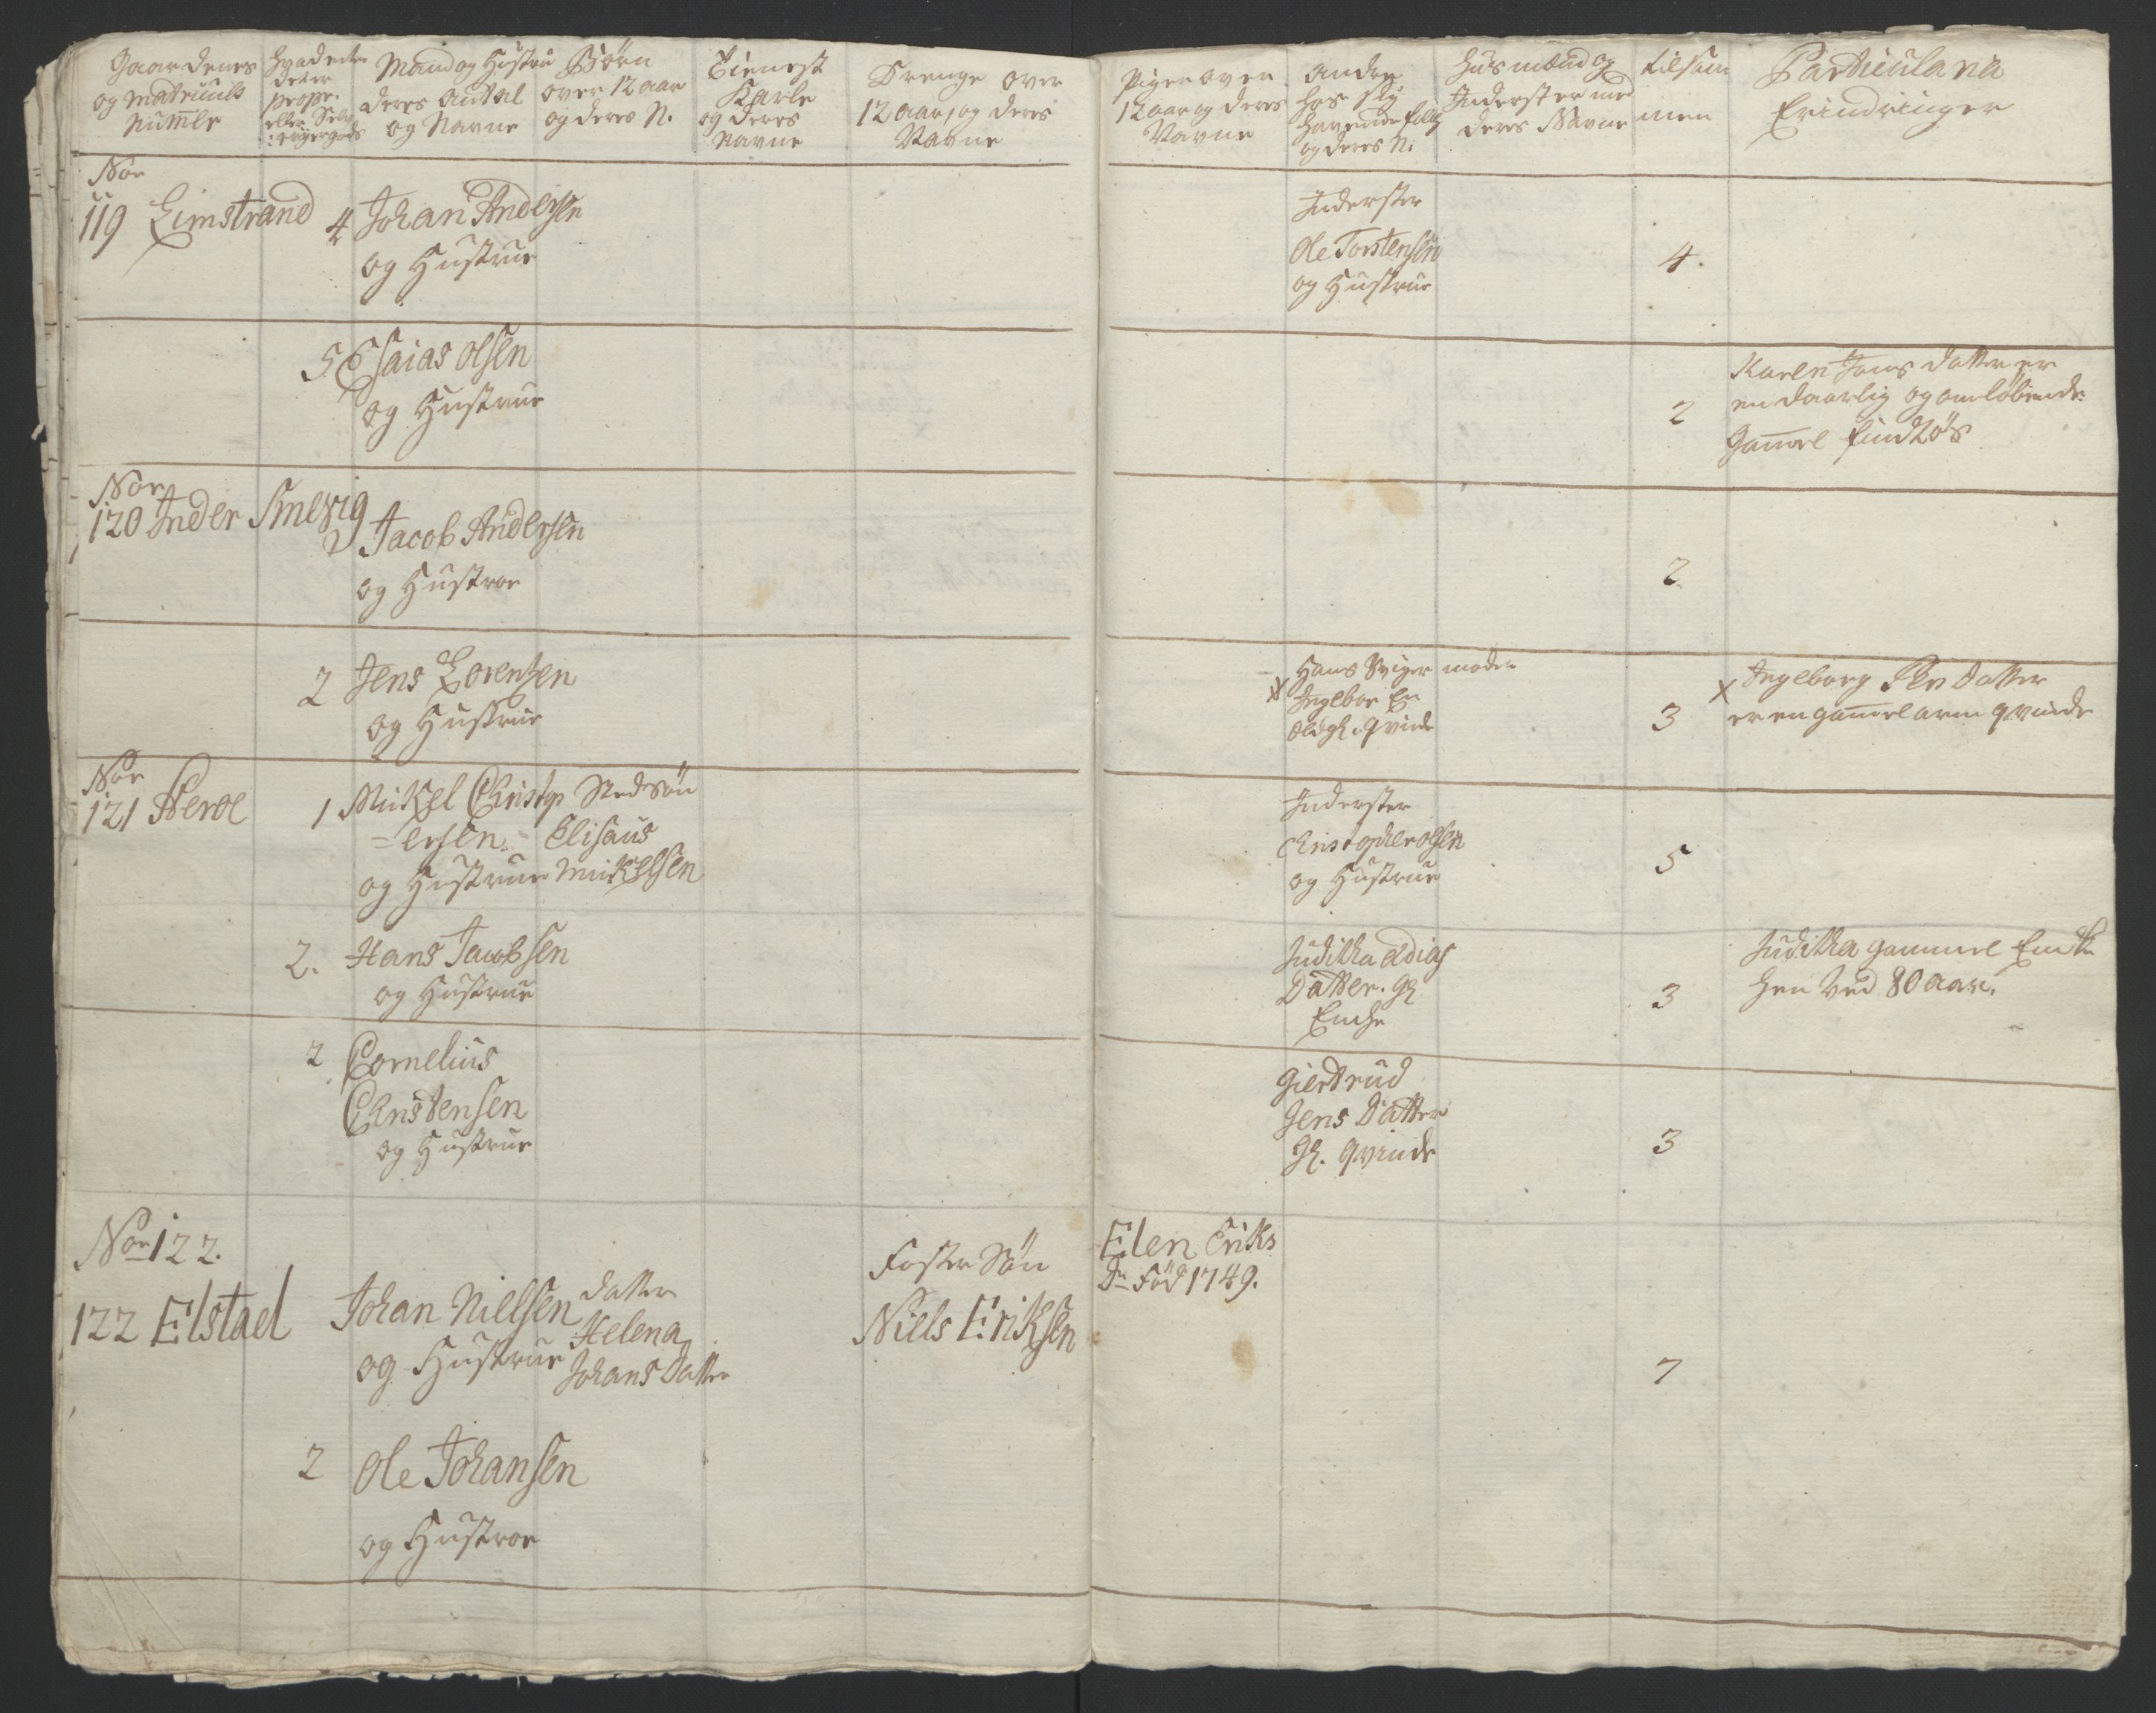 Gaardenes
og Matriculs
Numer
hvad enten
det er
propr.
eller Selv
eyergods
Mand og Hustru
deres Antal
og Navne
Børn
over 12 aar
og deres N.
Tienest
Karle
og deres
Navne
Drenge over
12 aar, og deres
Navne
Piger over
12 aar og deres
Navne
Andre
hos sig
havende folk
og deres N:
Husmænd og
Inderster med
deres Navne
tilsam
men
Particularia
Erindringer
Nor
119 Limstrand 4 Johan Andersen
og Hustrue
Inderster
Ole Torstensen
og Hustrue
4.
5 Esaias olsen
og Hustrue
2
Karen Jons datter er
en daarlig og omløbende
Gammel
Nor
120 Inder Smevig
2 Jacob Andersen
og Hustroe
2
2 Jens Lorentzen
og Hustrue
Hans Sviger moder
x Ingebor En
Qvinde
3
x Ingeborg datter
er en gammel arm qvinde
Nor
121 Herøe 1 Mikel Christop
= ersen.
og Hustrue
Sted Søn
Elisæus
Mikelsen
Inderster
Christopher olsen
og Hustrue
5
2. Hans Jacobsen
og Hustrue
Juditha
Datter. gl
Enche
3
Juditha gammel Encke
hen ved 80 aar.
2 Cornelius
Christensen
og Hustrue
Giertrud
Jens Datter
gl. Qvinde
3
Nor 122.
122 Elstad
Johan Nielsen
og Hustrue
datter
Helena
Johans Datter
Foster Søn
Niels Eriksen
Elen Eriks
Dr Fød 1749.
7
2 Ole Johansen
og Hustroe